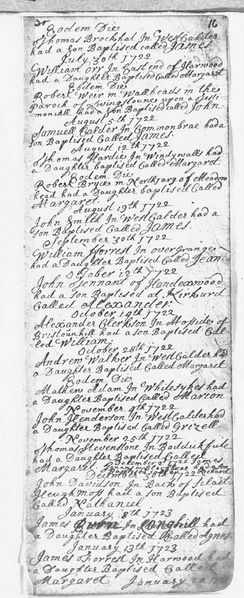 16
Eodem Die
Thomas Brockhal In West Calder
had a Son Baptised called James
July 30th 1722
William Orr In East end of Harwood
had a Daughter Baptised Called Margaret
Eodem Die
Robert Weir in Wallheads in the
Paroch of Livingstoune upon a Testi
monial had a Son Baptised called John
August 5th 1722
Samuell Calder In Common brae had a
Son Baptised Called James
August 12th 1722
Thomas Warden In Windywalls had
a Daughter baptised Called Margaret
Eodem Die
Robert Bryce in North of Meadow
head had a Daughter baptised Called
Margaret
August 19th 1722
John Smith In West Calder had a
Son Baptised Called James
September 30th 1722
William Forrest In over Grange
had a Daughter Baptised Called Jean
October 12th 1722
John Tennant of Handaxwood
had a Son Baptised at Kirkurd
Called Alexander
October 19th 1722
Alexander Clerkson In Mosside of
Bristounhill had a Son Baptised Cal
led William
October 26th 1722
Andrew Walker In West Calder had
a Daughter Baptised Called Margaret
Eodem Die
Mathew Adam In Whitesykes had
a Daughter Baptised Called Marion
November 9th 1722
John Henderson In West Calder had
a Daughter Baptised Called Grizell
November 25th 1722
Thomas Stevenston In Badduck full
had a Daughter Baptised Called
Margaret
John Davidson In Back of
Cleughmoss had a Son Baptised
Called Nathaniel
January 8th 1723
James In Longhill had
a Daughter Baptised Called Agnes
January 13th 1723
James Forrest In Harwood had
a Daughter Baptised Called
Margaret January